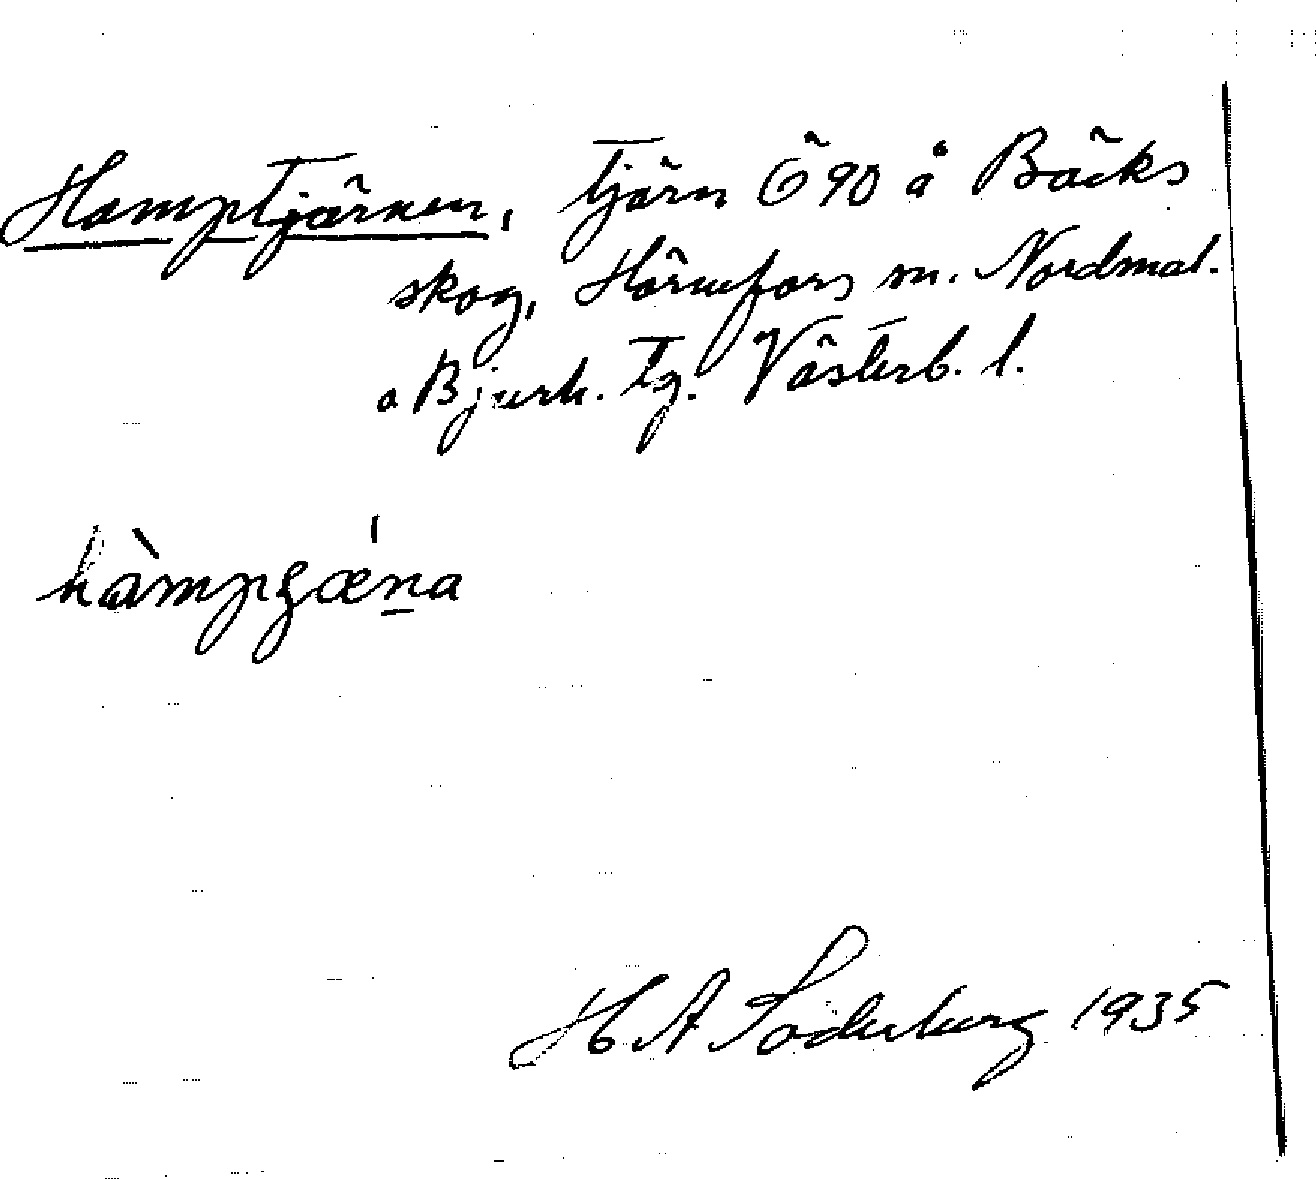 Hamptjärnen, tjärn Ö 90 å Bäcks
skog, Hörnefors sn. Nordmal.
o Bjurh. tg. Västerb. l.
hàmpʂǽn̲a
H A Söderberg 1935